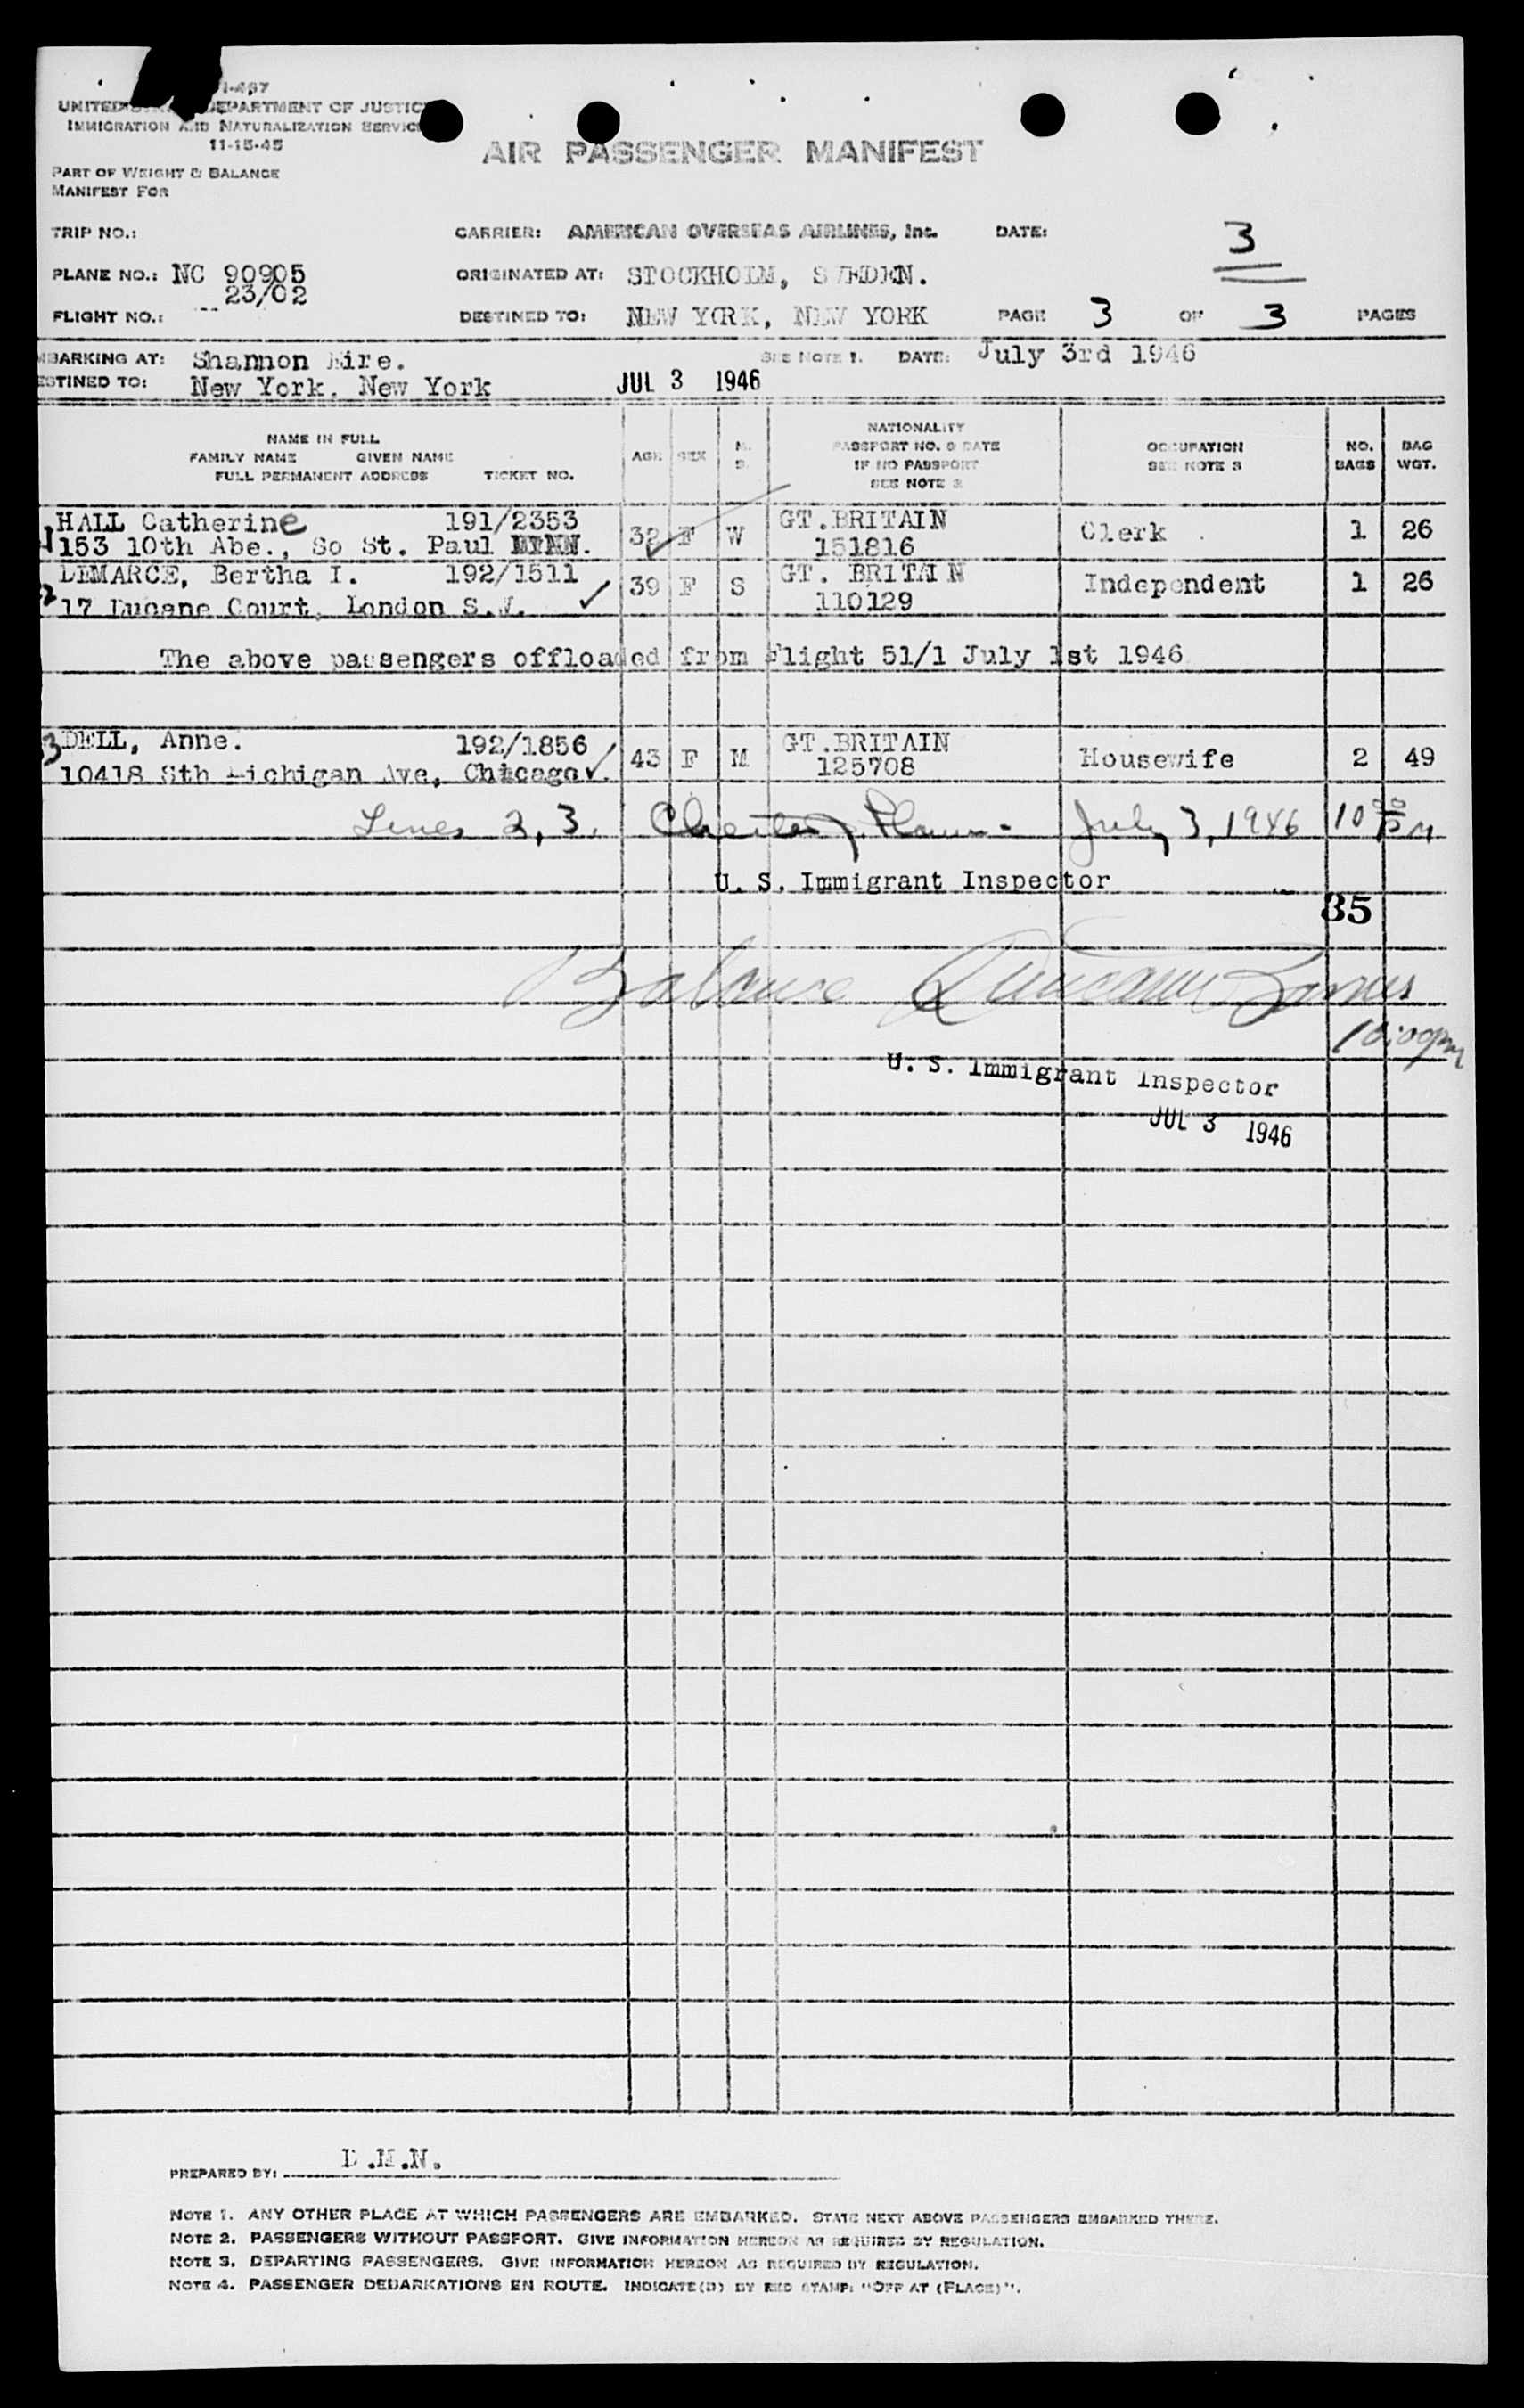 I-467
UNITED STATES DEPARTMENT OF JUSTICE
IMMIGRATION AND NATURALIZATION SERVICE
11-15-45
AIR PASSENGER MANIFEST
PART OF WEIGHT & BALANCE
MANIFEST FOR
TRIP NO.: CARRIER: AMERICAN OVERSEAS AIRLINES, Inc. DATE: 3
PLANE NO.: NC 90905 ORIGINATED AT: STOCKHOLM, SWEDEN.
23/02
FLIGHT NO.: DESTINED TO: NEW YORK, NEW YORK PAGE 3 OF 3 PAGES
MBARKING AT: Shannon Eire. SEE NOTE 1. DATE: July 3rd 1946
ESTINED TO: New York, New York JUL 3 1946
NAME IN FULL
FAMILY NAME GIVEN NAME
FULL PERMANENT ADDRESS TICKET NO.
AGE SEX M. S.
NATIONALITY
PASSPORT NO. & DATE
IF NO PASSPORT
SEE NOTE 2
OCCUPATION
SEE NOTE 3
NO. BAGS
BAG WGT.
1 HALL Catherine 191/2353 32 F W GT.BRITAIN Clerk 1 26
153 10th Abe., So St. Paul MINN. 151816
2 LEMARCE, Bertha I. 192/1511 39 F S GT. BRITAIN Independent 1 26
17 Lugane Court, London S.W. 110129
The above passengers offloaded from Flight 51/1 July 1st 1946
3 DELL, Anne. 192/1856 43 F M GT.BRITAIN Housewife 2 49
10418 Sth Michigan Ave, Chicago. 125708
Lines 2, 3. July 3, 1946 10 00 PM
U. S. Immigrant Inspector
85
Balance
10:00pm
U. S. Immigrant Inspector
JUL 3 1946
PREPARED BY: D.M.N.
NOTE 1. ANY OTHER PLACE AT WHICH PASSENGERS ARE EMBARKED. STATE NEXT ABOVE PASSENGERS EMBARKED THERE.
NOTE 2. PASSENGERS WITHOUT PASSPORT. GIVE INFORMATION HEREON AS REQUIRED BY REGULATION.
NOTE 3. DEPARTING PASSENGERS. GIVE INFORMATION HEREON AS REQUIRED BY REGULATION.
NOTE 4. PASSENGER DEBARKATIONS EN ROUTE. INDICATE(D) BY RED STAMP: "OFF AT (PLACE)".